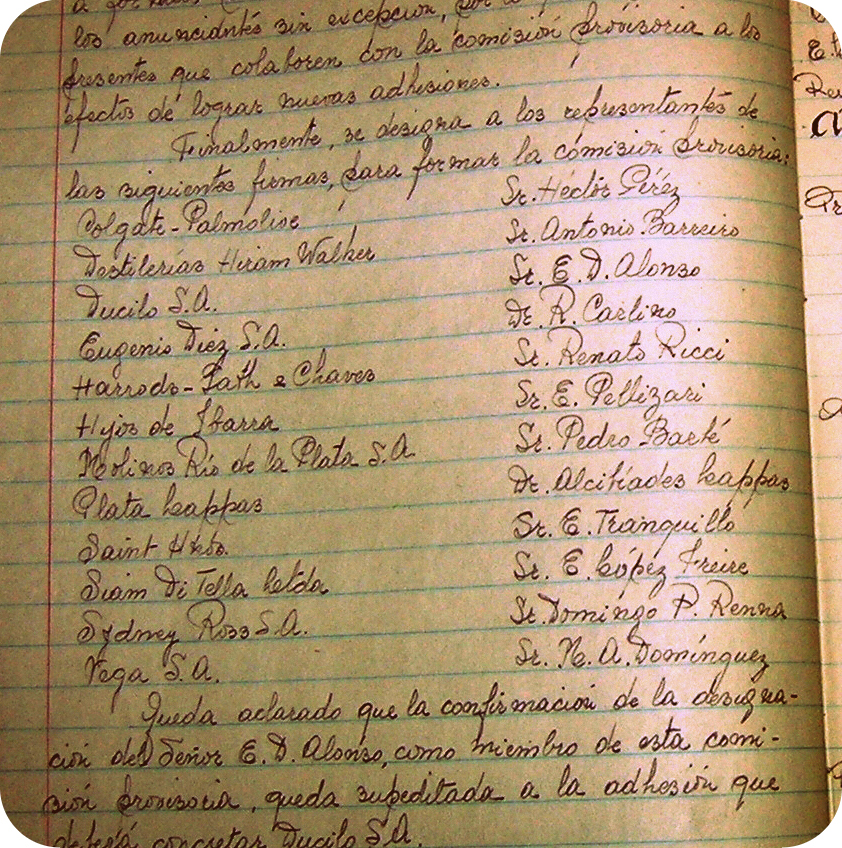 los anunciantes sin excepción, por
presentes que colaboren con la comisión provisoria a los
efectos de lograr nuevas adhesiones.
Finalmente, se designa a los representantes de
las siguientes firmas, para formar la comisión provisoria:
Colgate-Palmolive Sr. Héctor Pérez
Destilerías Hiram Walker Sr. Antonio Barreiro
Ducilo S.A. Sr. E. D. Alonso
Eugenio Diéz S.A. Dr. R. Carlino
Harrods-Gath & Chaves Sr. Renato Ricci
Hijos de Ibarra Sr. E. Pellizari
Molinos Río de la Plata S.A. Sr. Pedro Barté
Plata Lappas Dr. Alcibíades Lappas
Saint Hnos. Sr. E. Tranquillo
Siam Di Tella Ltda Sr. E. López Freire
Sydney Ross S.A. Sr. Domingo P. Renna
Vega S.A. Sr. M. A. Domínguez
Queda aclarado que la confirmación de la designa-
ción del Señor E. D. Alonso, como miembro de esta comi-
sión provisoria, queda supeditada a la adhesión que
deberá concretar Ducilo S.A.